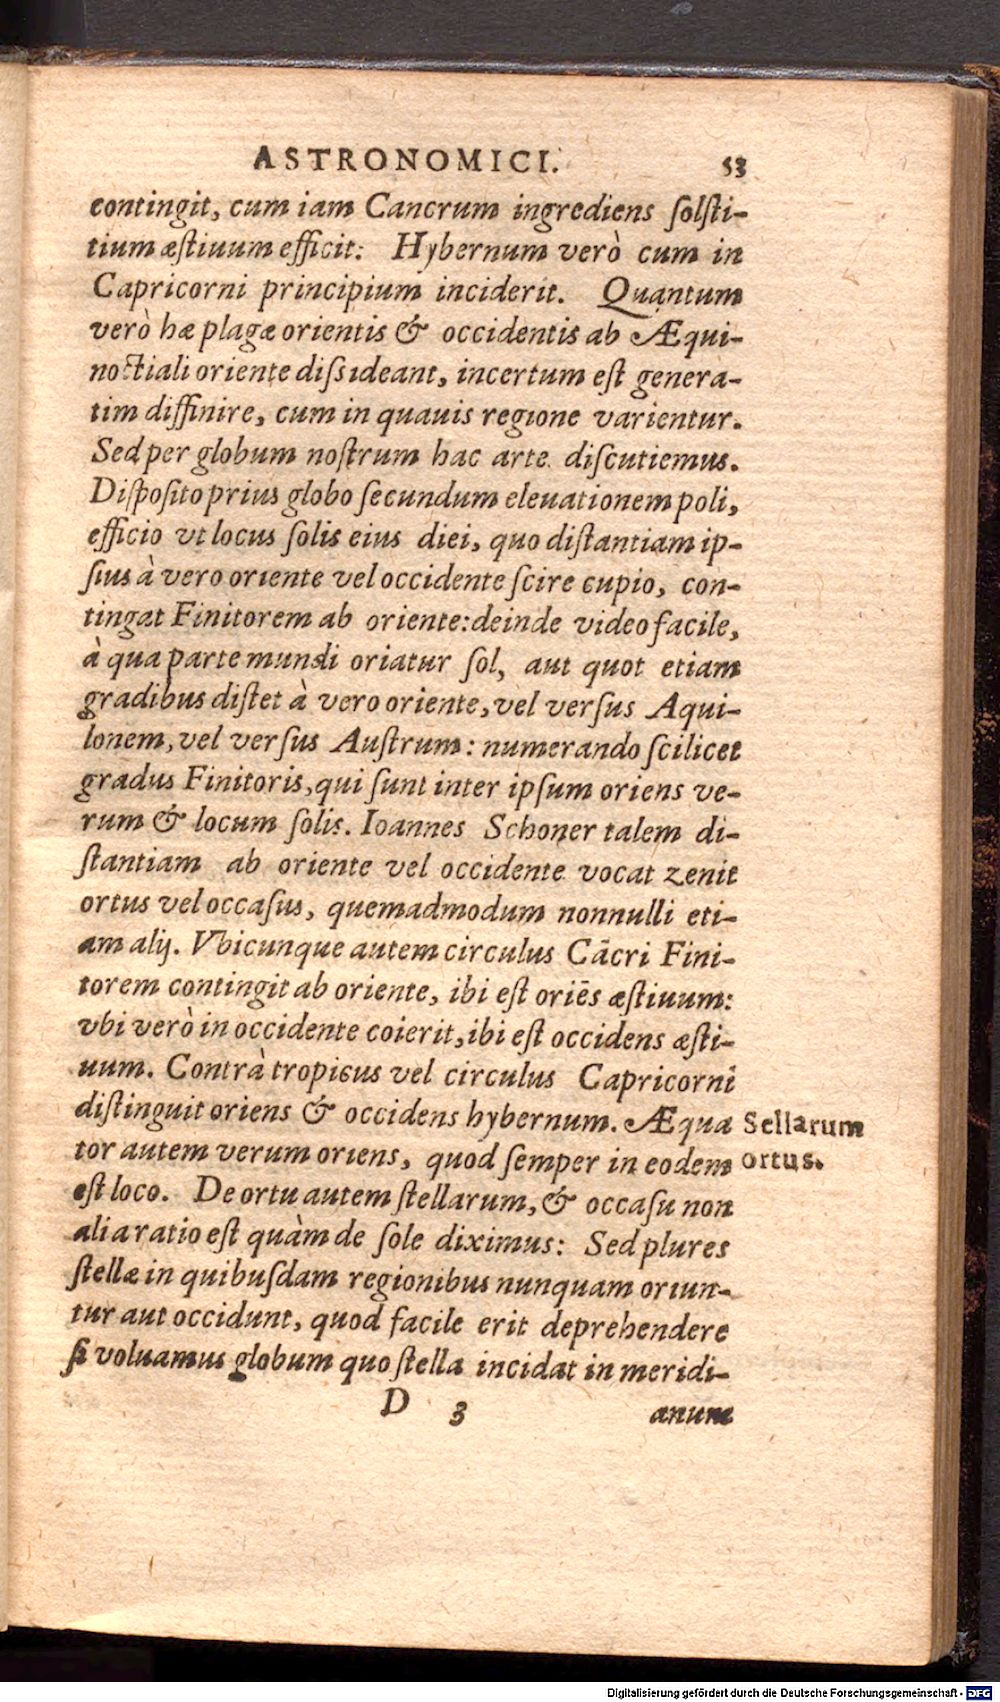 ASTRONOMICI. 53
contingit, cum iam Cancrum ingrediens ſolſti-
tium æſtiuum efficit: Hybernum verò cum in
Capricorni principium inciderit. Quantum
verò hæ plagæ orientis & occidentis ab Æqui-
noctiali oriente diſsideant, incertum eſt genera-
tim diffinire, cum in quauis regione varientur.
Sed per globum noſtrum hac arte diſcutiemus.
Diſpoſito prius globo ſecundum eleuationem poli,
efficio vt locus ſolis eius diei, quo diſtantiam ip-
ſius à vero oriente vel occidente ſcire cupio, con-
tingat Finitorem ab oriente: deinde video facile,
à qua parte mundi oriatur ſol, aut quot etiam
gradibus diſtet à vero oriente, vel verſus Aqui-
lonem, vel verſus Auſtrum: numerando ſcilicet
gradus Finitoris, qui ſunt inter ipſum oriens ve-
rum & locum ſolis. Ioannes Schoner talem di-
ſtantiam ab oriente vel occidente vocat zenit
ortus vel occaſus, quemadmodum nonnulli eti-
am alij. Vbicunque autem circulus Cācri Fini-
torem contingit ab oriente, ibi eſt oriēs æſtiuum:
vbi verò in occidente coierit, ibi eſt occidens æſti-
uum. Contrà tropicus vel circulus Capricorni
diſtinguit oriens & occidens hybernum. Æqua
tor autem verum oriens, quod ſemper in eodem
eſt loco. De ortu autem ſtellarum, & occaſu non
alia ratio eſt quàm de ſole diximus: Sed plures
ſtellæ in quibuſdam regionibus nunquam oriun-
tur aut occidunt, quod facile erit deprehendere
ſi voluamus globum quo ſtella incidat in meridi-
D 3 anum
Sellarum
ortus.
Digitalisierung gefördert durch die Deutsche Forschungsgemeinschaft - DFG